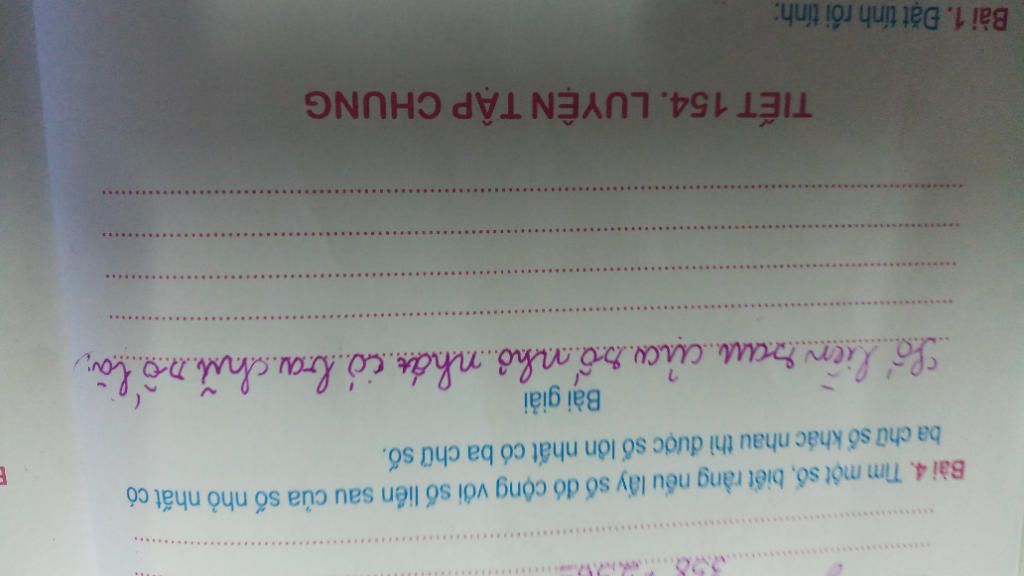 Bài 4. Tìm một số, biết rằng nếu lấy số đó cộng với số liền sau của số nhỏ nhất có
ba chữ số khác nhau thì được số lớn nhất có ba chữ số.
Bài giải
Số liền sau của số nhỏ nhất có ba chữ số là:
TIẾT 154. LUYỆN TẬP CHUNG
Bài 1. Đặt tính rồi tính: